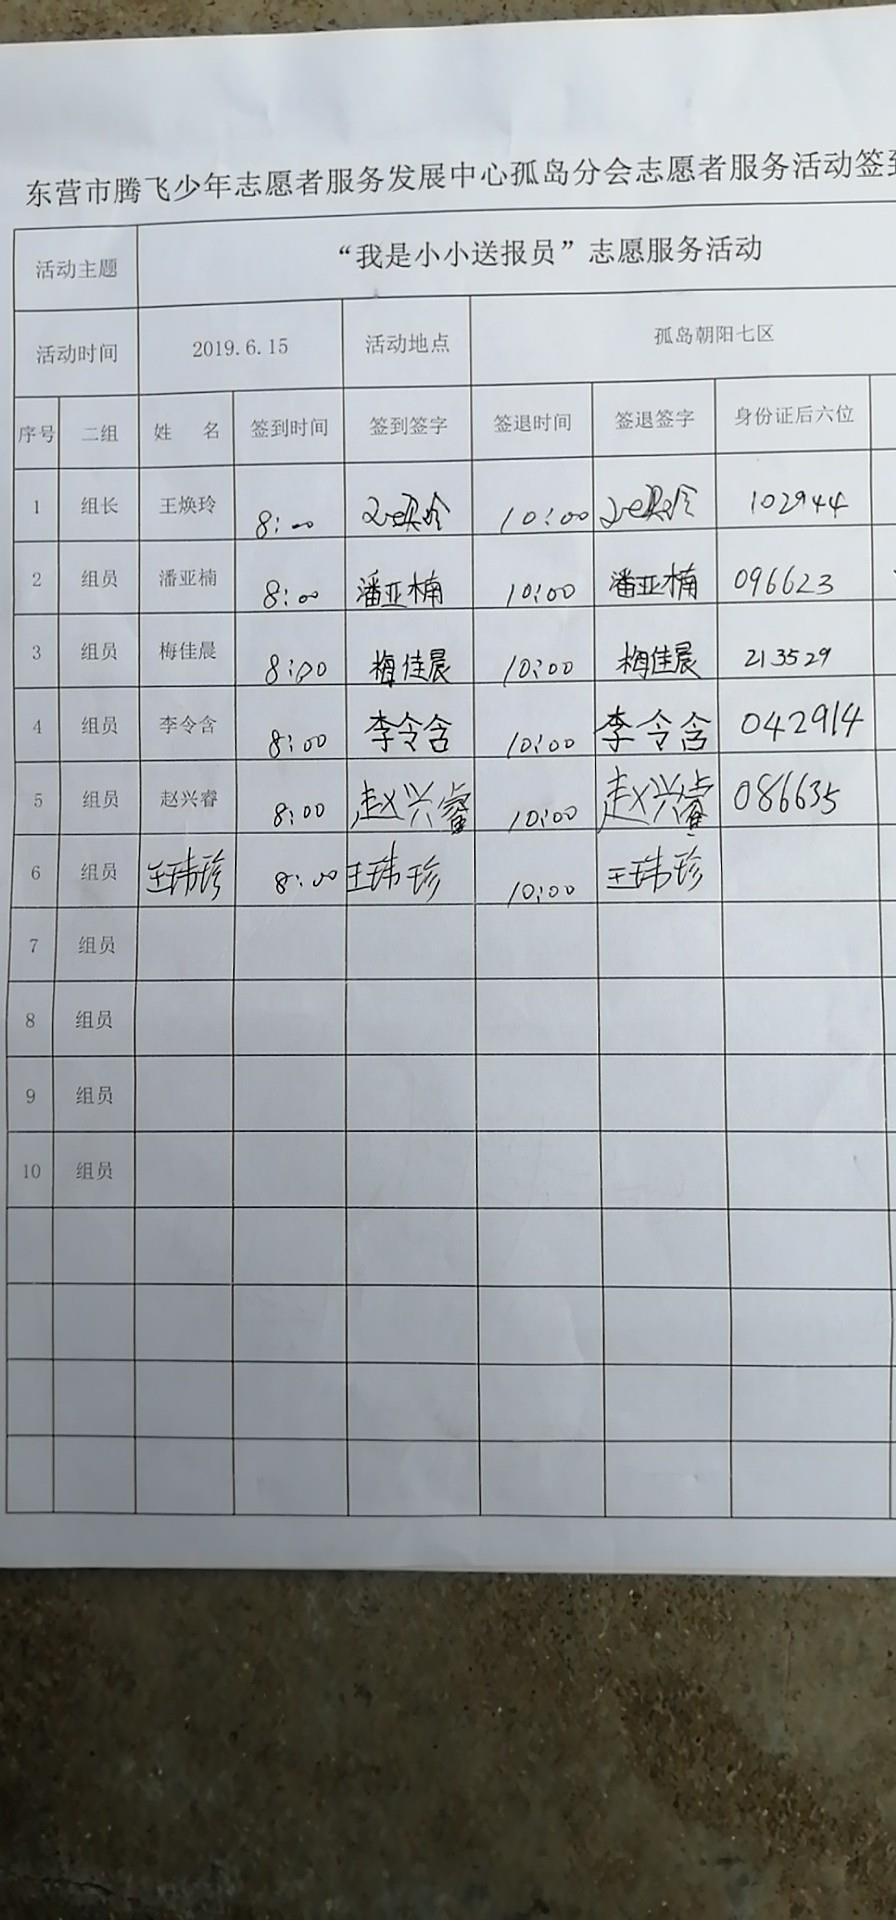 东营市腾飞少年志愿者服务发展中心孤岛分会志愿者服务活动签到
活动主题 “我是小小送报员”志愿服务活动
活动时间 2019.6.15 活动地点 孤岛朝阳七区
序号 二组 姓 名 签到时间 签到签字 签退时间 签退签字 身份证后六位
1 组长 王焕玲 8:00 王焕玲 10:00 王焕玲 102944
2 组员 潘亚楠 8:00 潘亚楠 10:00 潘亚楠 096623
3 组员 梅佳晨 8:00 梅佳晨 10:00 梅佳晨 213529
4 组员 李令含 8:00 李令含 10:00 李令含 042914
5 组员 赵兴睿 8:00 赵兴睿 10:00 赵兴睿 086635
6 组员 王玮珍 8:00 王玮珍 10:00 王玮珍
7 组员
8 组员
9 组员
10 组员